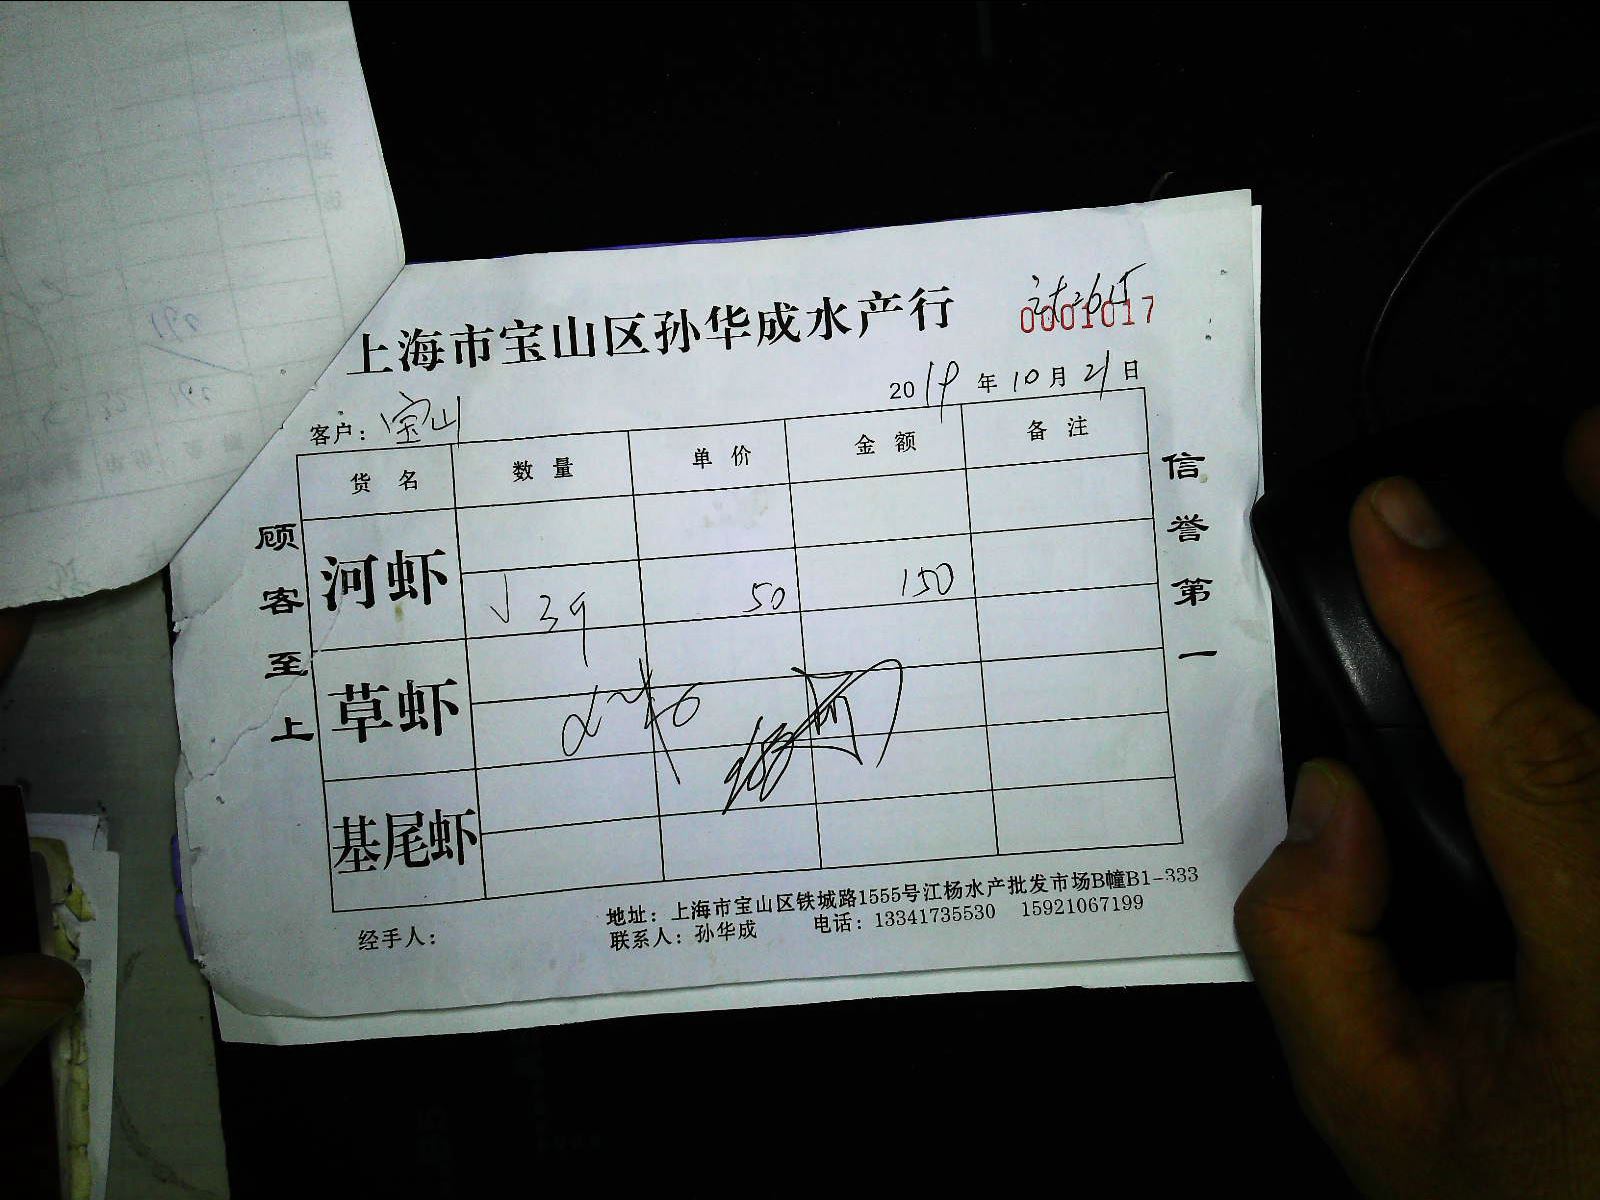 上海市宝山区孙华成水产行
0001017
2019年10月21日
客户：宝山
货名 数量 单价 金额 备注
河虾
√ 3 50 150
草虾
基尾虾
顾客至上
信誉第一
地址：上海市宝山区铁城路1555号江杨水产批发市场B幢B1-333
经手人： 联系人：孙华成 电话：13341735530 15921067199